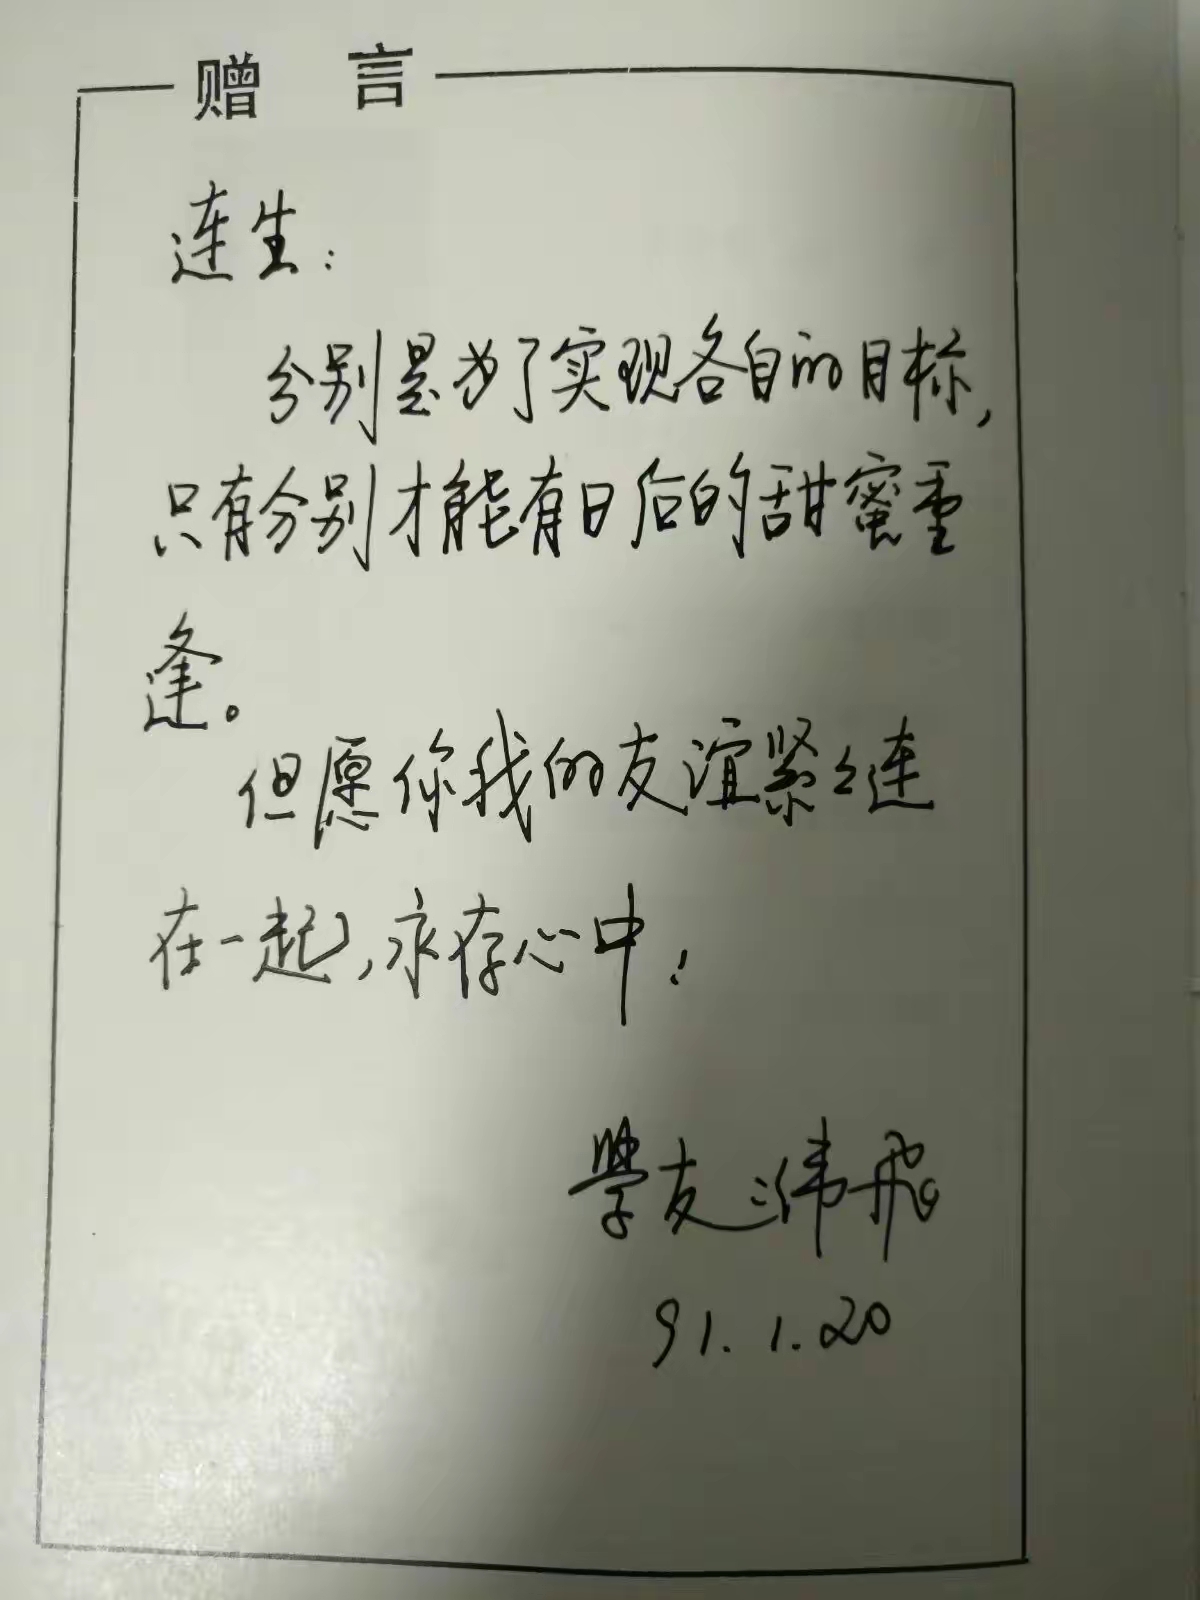 赠 言
连生：
分别是为了实现各自的目标，
只有分别才能有日后的甜蜜重
逢。
但愿你我的友谊紧々连
在一起，永存心中！
学友：伟飛
91.1.20